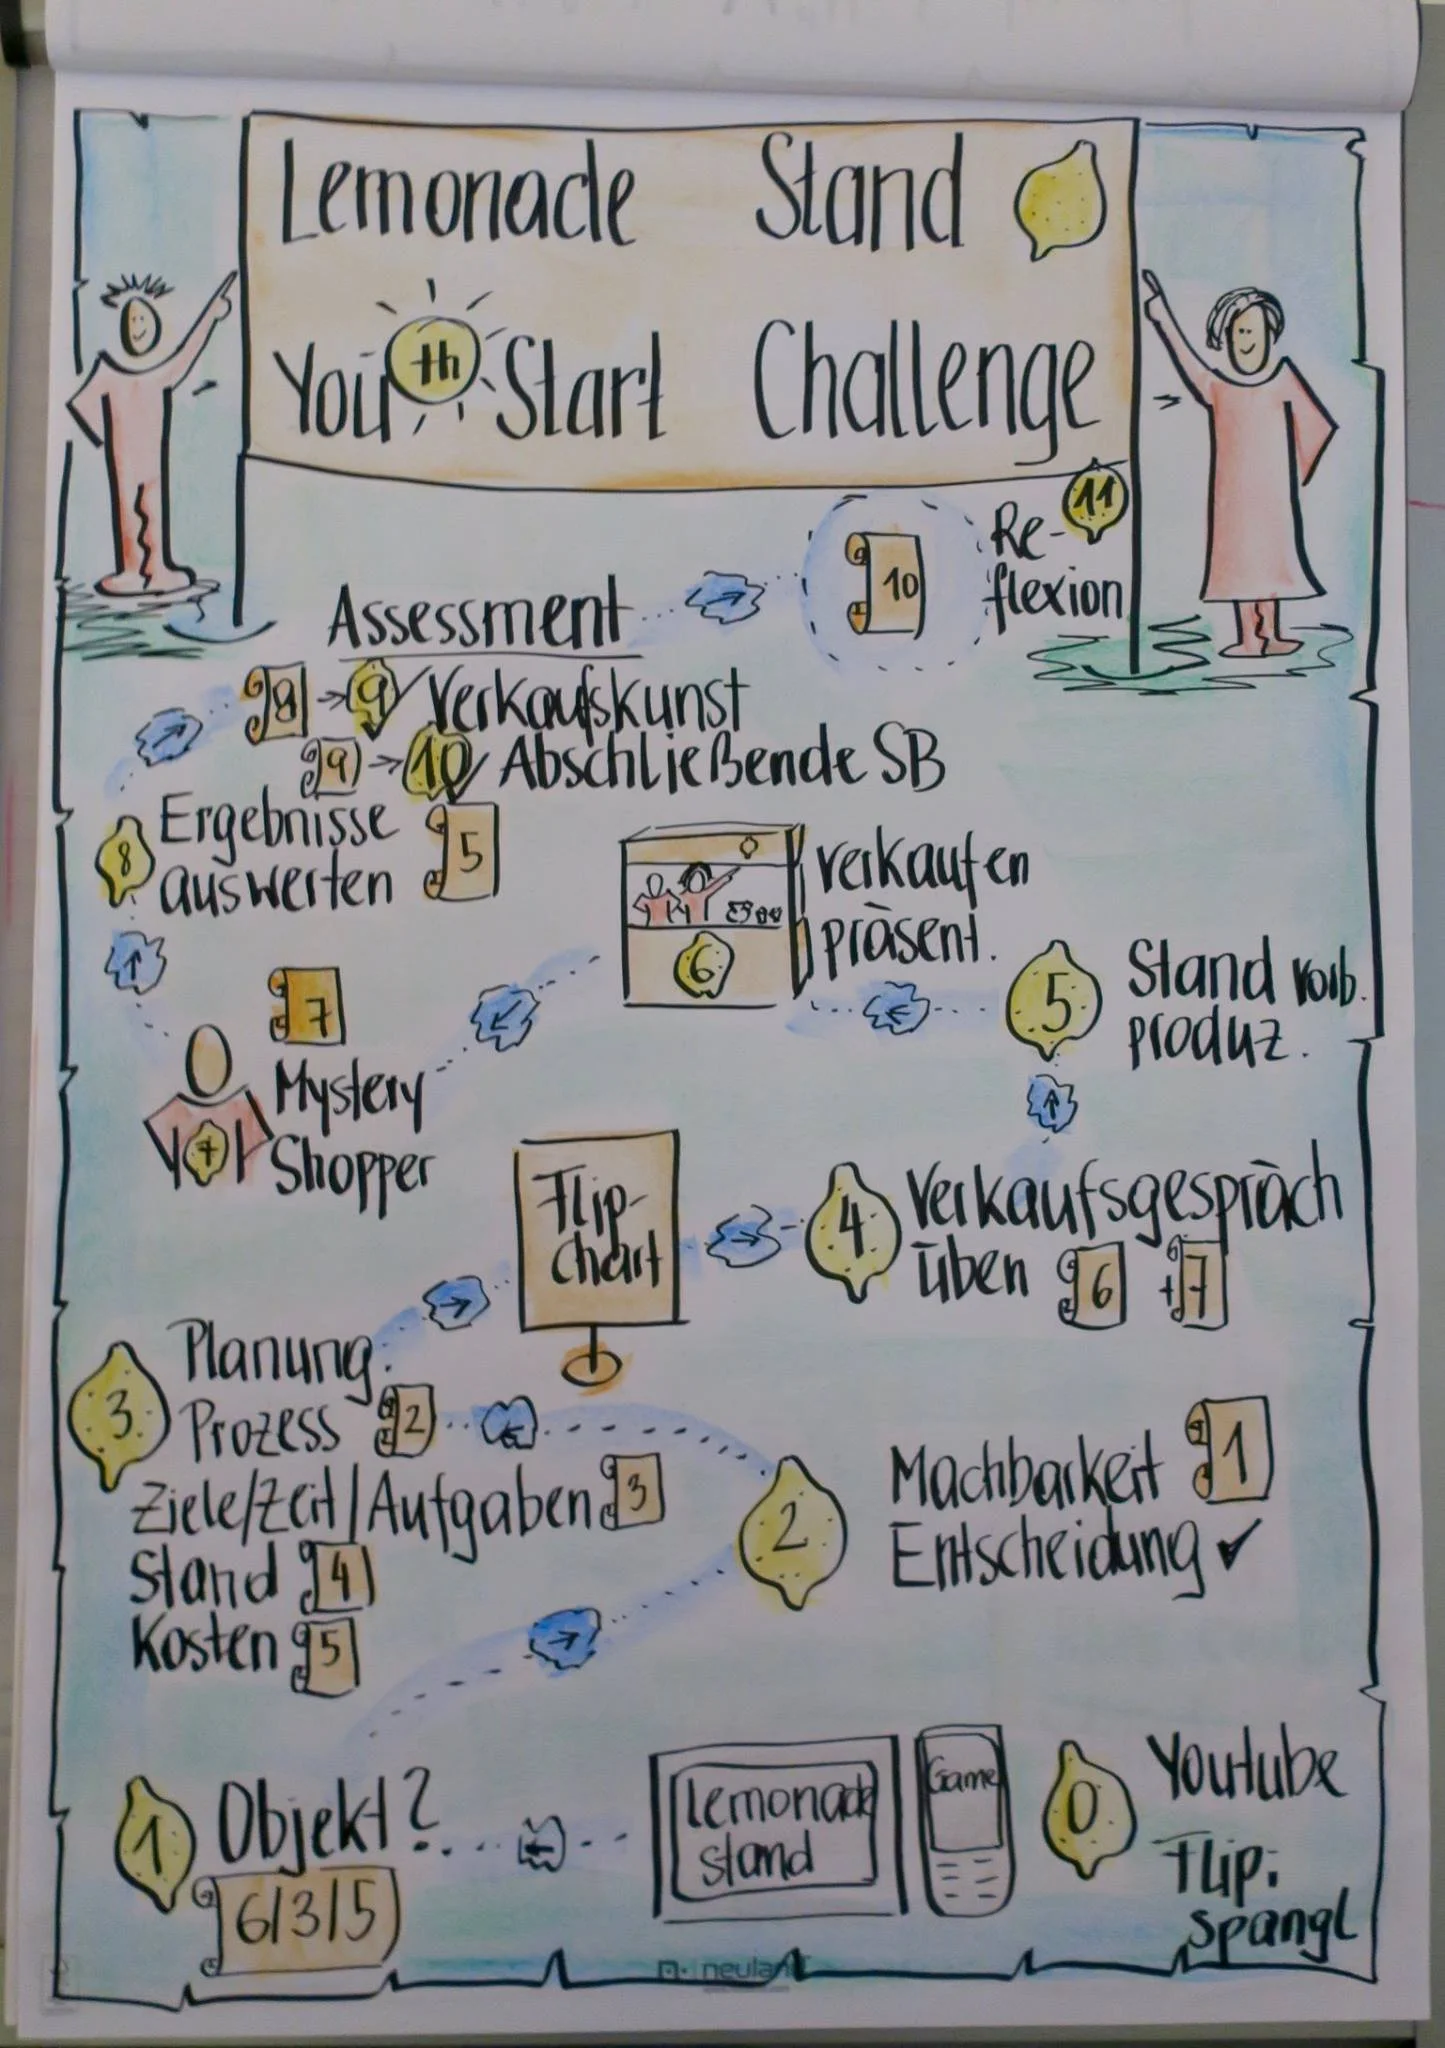 Lemonade Stand
Youth Start Challenge
11
Re-
flexion
10
Assessment
8 → 9 Verkaufskunst
9 → 10 Abschließende SB
8 Ergebnisse
auswerten 5
verkaufen
präsent.
6
5 Stand vorb.
produz.
7
Mystery
Shopper
7
Flip-
chart
4 Verkaufsgespräch
üben 6 + 7
3 Planung:
Prozess 2
Ziele/Zeit/Aufgaben 3
Stand 4
Kosten 5
2 Machbarkeit 1
Entscheidung ✓
1 Objekt?
6/3/5
Lemonade
stand
Game
0 Youtube
Flip:
Spangl
neuland